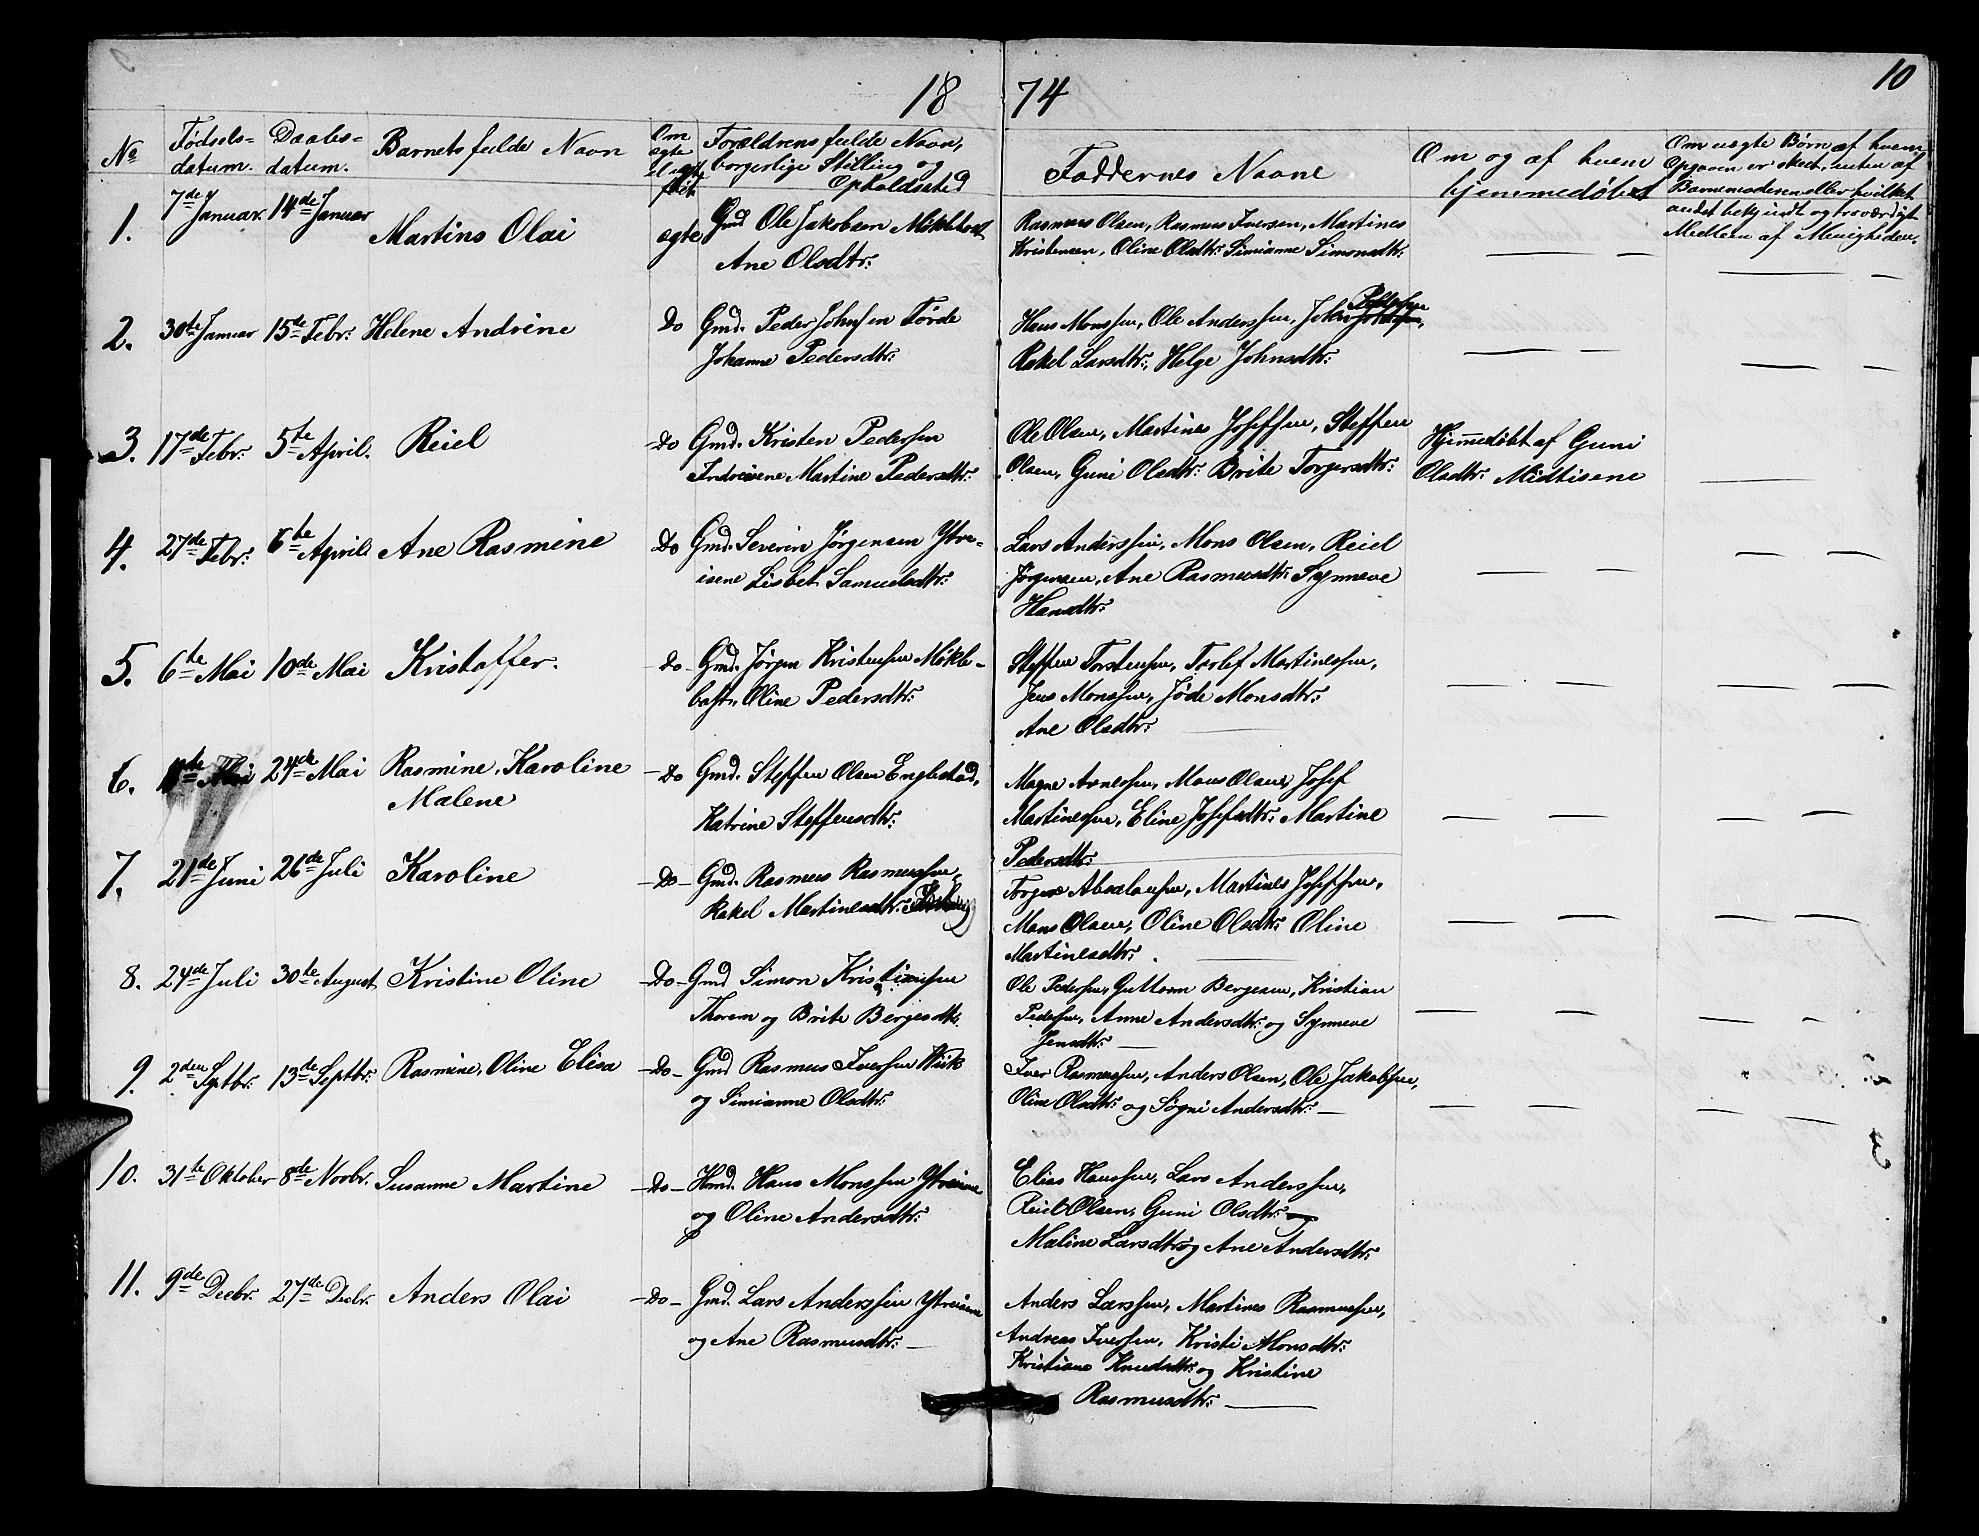 18 74
10
No
Fødsels-
datum.
Daabs-
datum.
Barnets fulde Navn
Om
ægte
el. uægte
født
Forældrens fulde Navn,
borgerlige Stilling og
Opholdsted
Faddernes Navne
Om og af hvem
hjemmedøbt
Om uægte Børn af hvem
Opgaven er skeet, enten af
Barnemoderen eller hvilket
andet bekjendt og troværdigt
Medlem af Menigheden.
1. 7de Januar. 14de Januar Martins Olai ægte Gmd Ole Jakobsen Møklebost
Ane Olsdtr:
Rasmus Olsen, Rasmus Iversen, Martines
Kristensen, Oline Olsdtr: Simianne Simonsdtr:
2. 30te Januar 15de Febr: Helene Andrine Do Gmd. Peder Johnsen Førde
Johanne Pedersdtr:
Hans Monssen, Ole Anderssen, John Pedersen,
Rakel Larsdtr:, Helge Johnsdtr:
3. 17de Febr: 5te April. Reiel Do Gmd. Kristen Pedersen
Indreisene Martine Pedersdtr:
Ole Olsen, Martines Josefsen, Steffen
Olsen, Guni Olsdtr: Brite Torgersdtr:
Hjemmedøbt af Guni
Olsdtr: Midtisene
4. 27de Febr: 6te April Ane Rasmine Do Gmd. Severin Jørgensen Ytre-
isene Lisbet Samuelsdtr:
Lars Anderssen, Mons Olsen, Reiel
Jørgensen, Ane Rasmusdtr: Synneve
Hansdtr:
5. 6te Mai 10de Mai Kristoffer. do Gmd. Jørgen Kristensen Møkle-
bost, Oline Pedersdtr:
Steffen Torstensen, Torlef Martinessen,
Jens Monssen, Jøde Monsdtr:
Ane Olsdtr:
6. 11te Mai 24de Mai Rasmine, Karoline
Malene
Do Gmd. Steffen Olsen Englestad,
Katrine Steffensdtr:
Magne Arnessen, Mons Olsen, Josef
Martinessen, Eline Josefsdtr: Martine
Pedersdtr:
7. 21de Juni 26de Juli Karoline Do Gmd. Rasmus Rasmussen,
Rakel Martinesdtr:
Torger Absalonsen, Martines Josefsen,
Mons Olsen, Oline Olsdtr: Oline
Martinesdtr:
8. 24de Juli 30te August Kristine Oline Do Gmd Simon Kristiansen
Thorem og Brite Bergesdtr.
Ole Pedersen, Guttorm Bergesen, Kristian
Pedersen, Anne Andersdtr: og Synneve
Jensdtr:
9. 2den Septbr. 13de Septbr: Rasmine, Oline Elisa Do Gmd Rasmus Iversen Wiik
og Simianne Olsdtr:
Iver Rasmussen, Anders Olsen, Ole Jakobsen,
Oline Olsdtr: og Søgni Andersdtr:
10. 31te Oktober 8de Novbr. Susanne Martine Do Hmd. Hans Monssen Ytreisene
og Oline Andersdtr:
Elias Hanssen, Lars Anderssen,
Reiel Olsen, Guni Olsdtr:
Maline Larsdtr: og Ane Andersdtr:
11. 9de Decbr. 27de Decbr. Anders Olai Do Gmd. Lars Anderssen Ytreisene
og Ane Rasmusdtr:
Anders Larssen, Martines Rasmussen,
Andreas Iversen, Kristi Monsdtr:
Kristiane Knudsdtr: og Kristine
Rasmusdtr: